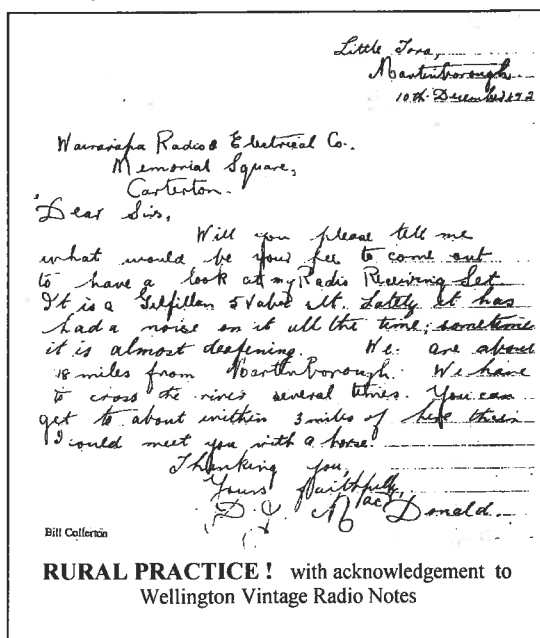 Little Tora,
Martinborough
10th December 192
Wairarapa Radio & Electrical Co.,
Memorial Square,
Carterton.
Dear Sirs,
Will you please tell me
what would be your fee to come out
to have a look at my Radio Receiving Set
It is a Gilfillan 5 Valve Lately it has
had a noise on it all the time; sometime
it is almost deafening. We are about
18 miles from Martinborough. We have
to cross the river several times. You can
get to about within 3 miles of here then
I could meet you with a horse.
Thanking you,
Yours Faithfully,
D. MacDonald.
Bill Collerton
RURAL PRACTICE ! with acknowledgement to
Wellington Vintage Radio Notes